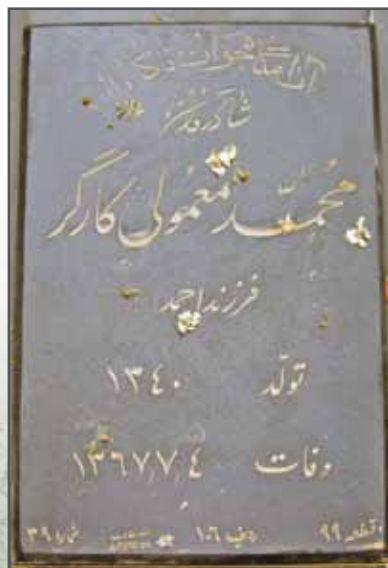 شادروان
محمد معمولی کارگر
فرزند احمد
تولد ۱۳۴۰
وفات ۱۳۶۷٫۷٫۴
قطعه ۹۹ ردیف ۱۰۶ شماره ۳۹